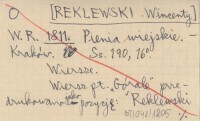 O [REKLEWSKI Wincenty]
W. R. 1811. Pienia wiejskie. –
Kraków. Ss. 190, 16°
Wiersze.
Wiersz pt. „Górale" prze-
drukowano pozycję: Reklewski